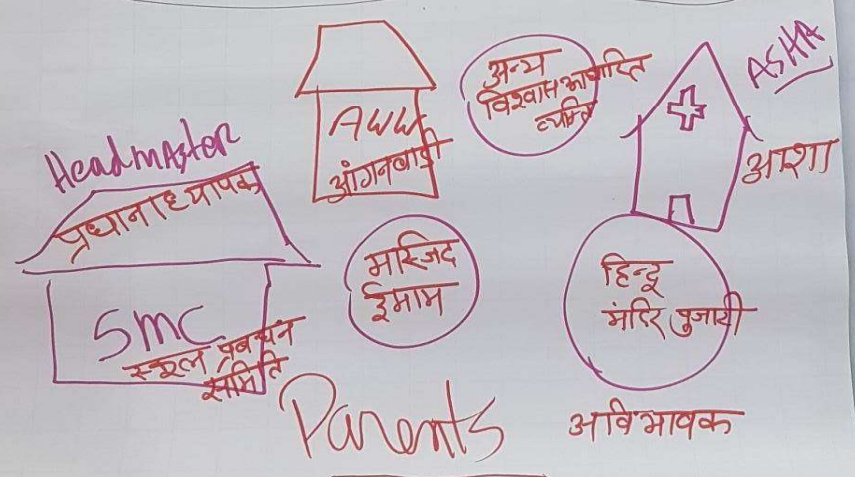 Headmaster
प्रधानाध्यापक
SMC
स्कूल प्रबन्धन
समिति
AWW
आंगनबाड़ी
अन्य
विश्वास आधारित
व्यक्ति
ASHA
आशा
मस्जिद
ईमाम
हिन्दू
मंदिर पुजारी
Parents
अविभावक